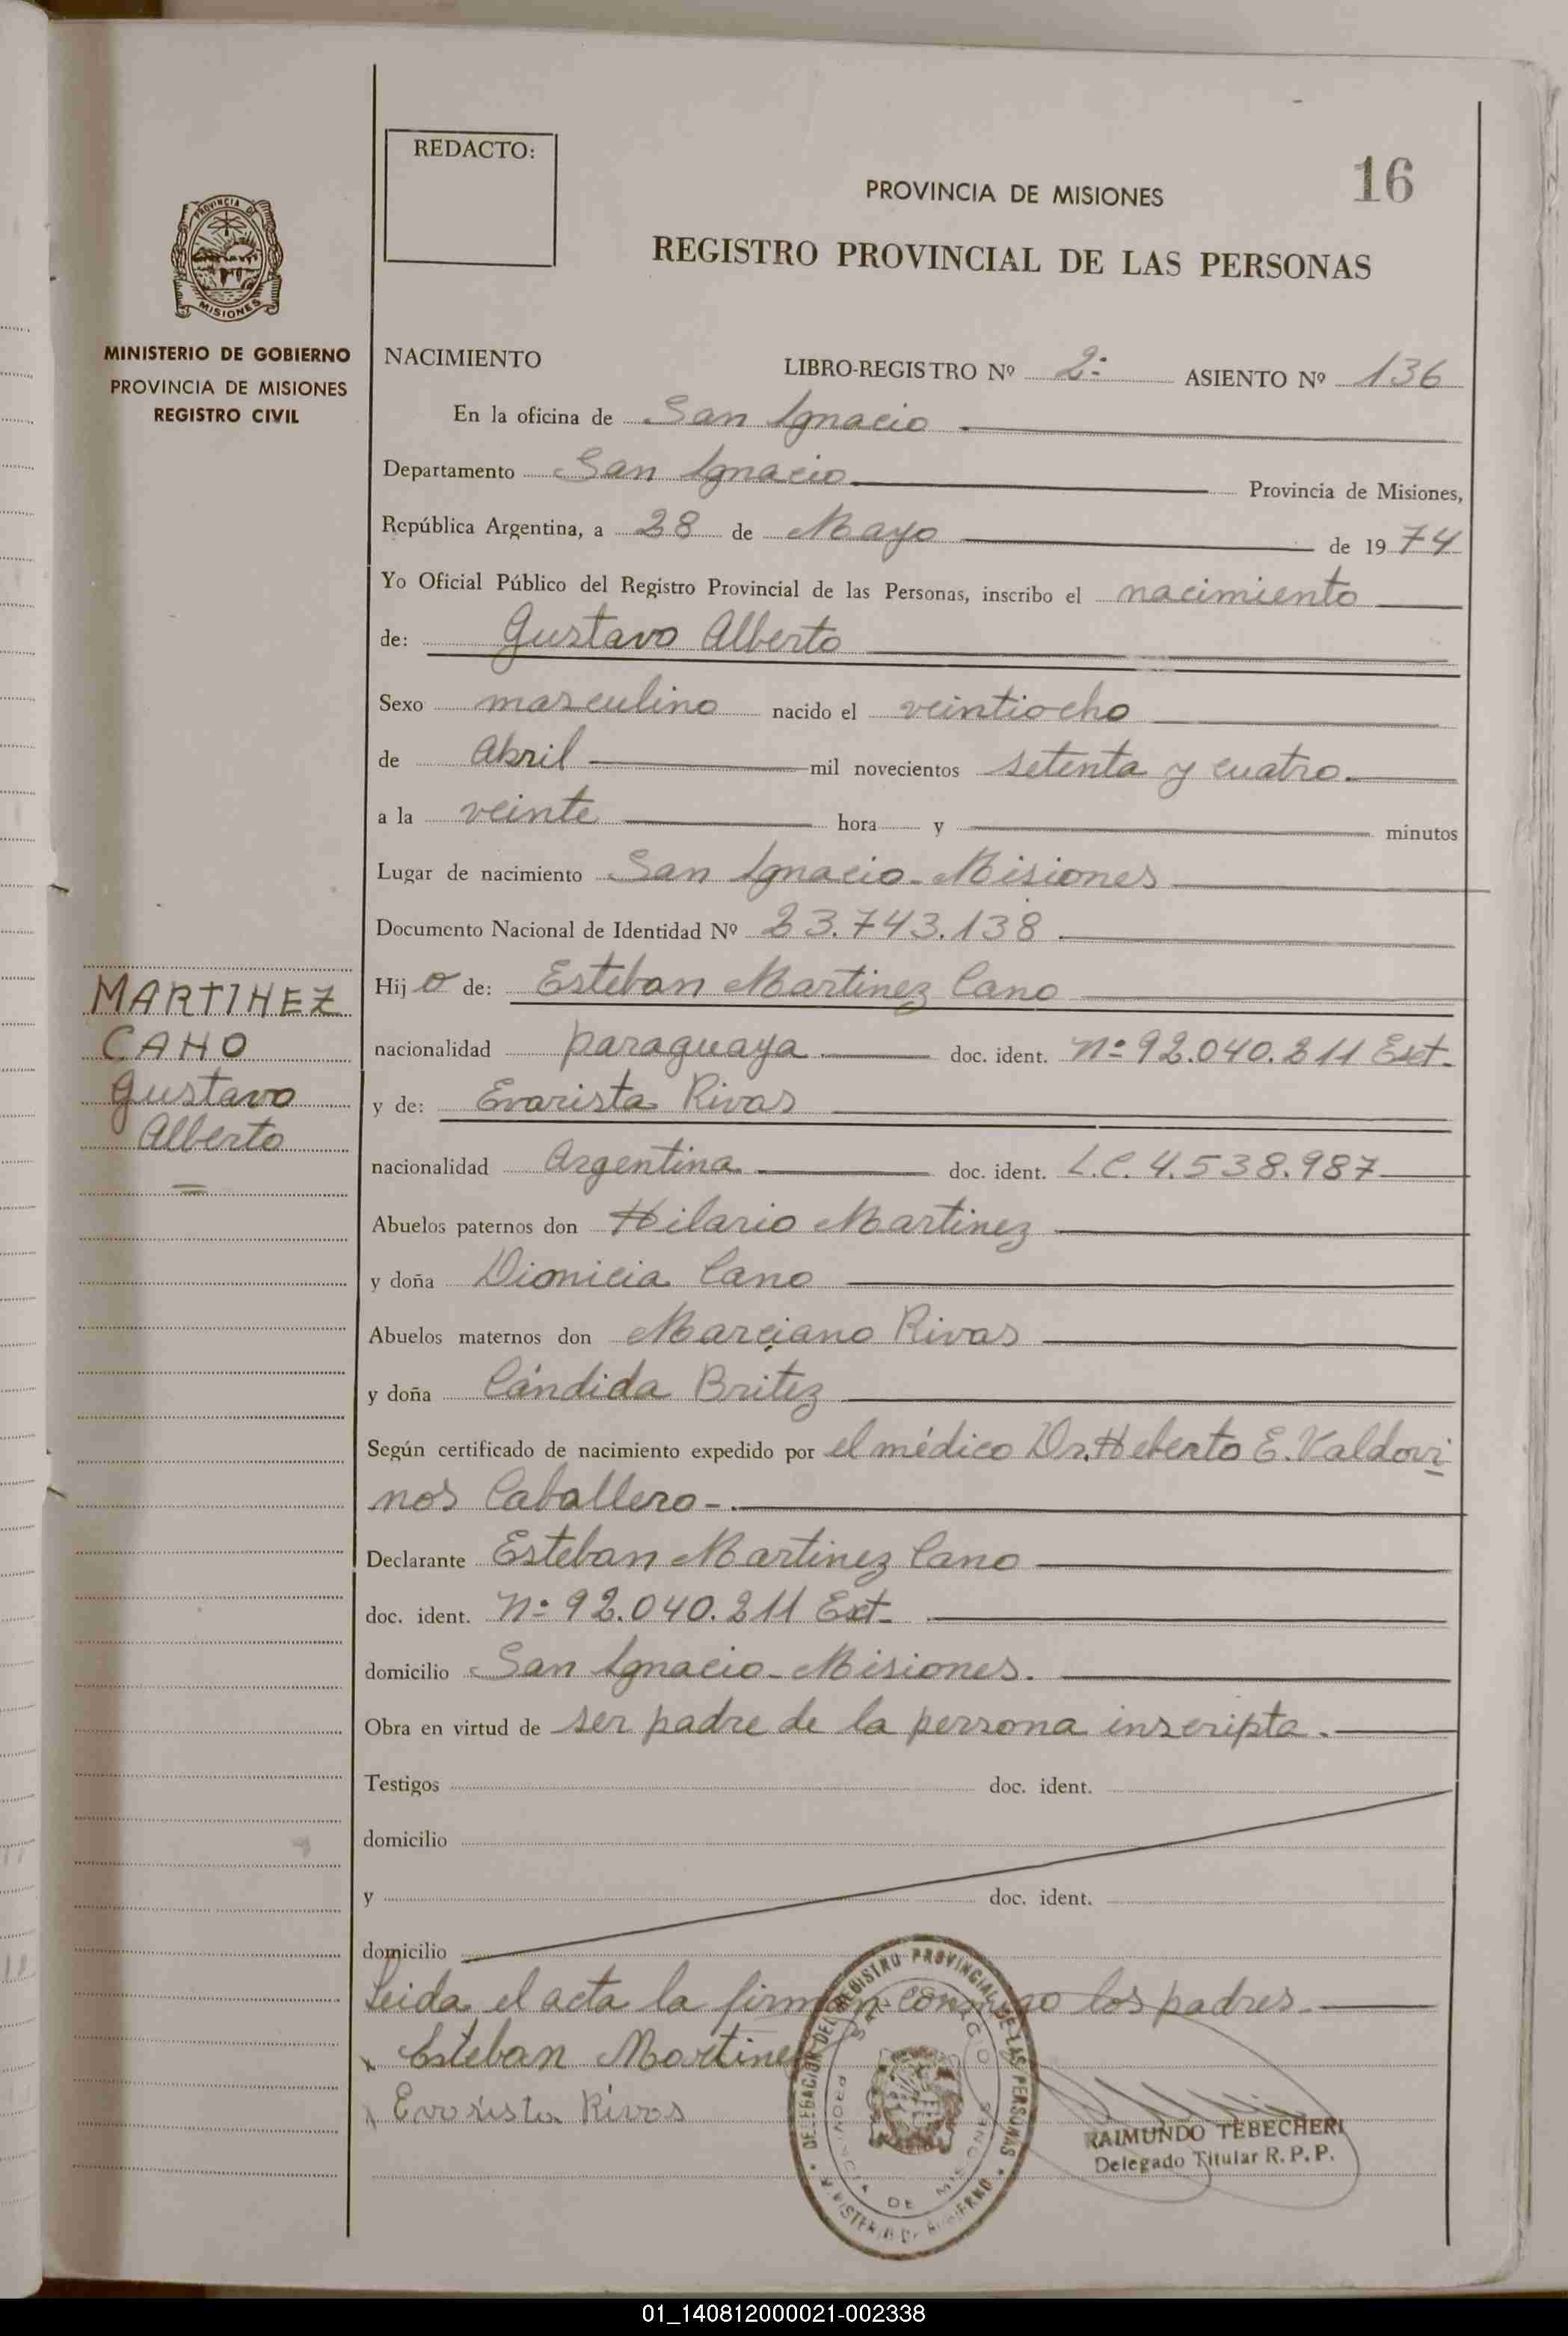 REDACTO:
16
PROVINCIA DE MISIONES
REGISTRO PROVINCIAL DE LAS PERSONAS
PROVINCIA DE
MISIONES
MINISTERIO DE GOBIERNO
PROVINCIA DE MISIONES
REGISTRO CIVIL
NACIMIENTO LIBRO-REGISTRO Nº 2º ASIENTO Nº 136
En la oficina de San Ignacio
Departamento San Ignacio Provincia de Misiones,
República Argentina, a 28 de Mayo de 1974
Yo Oficial Público del Registro Provincial de las Personas, inscribo el nacimiento
de: Gustavo Alberto
Sexo masculino nacido el veintiocho
de Abril mil novecientos setenta y cuatro.
a la veinte hora y minutos
Lugar de nacimiento San Ignacio-Misiones
Documento Nacional de Identidad Nº 23.743.138
Hijo de: Esteban Martinez Cano
nacionalidad paraguaya doc. ident. nº 92.040.211 Ext.
y de: Evarista Rivas
nacionalidad Argentina doc. ident. L.C. 4.538.987
Abuelos paternos don Hilario Martinez
y doña Dionicia Cano
Abuelos maternos don Marciano Rivas
y doña Cándida Britez
Según certificado de nacimiento expedido por el médico Dr. Heberto E. Valdovi
nos Caballero-.
Declarante Esteban Martinez Cano
doc. ident. nº 92.040.211 Ext.
domicilio San Ignacio-Misiones.
Obra en virtud de ser padre de la persona inscripta.
Testigos doc. ident.
domicilio
y doc. ident.
domicilio
Leida el acta la firman conmigo los padres.
x Esteban Martinez
x Evarista Rivas
MARTINEZ
CANO
Gustavo
Alberto
DELEGACION DEL REGISTRO PROVINCIAL DE LAS PERSONAS
MINISTERIO DE GOBIERNO
SAN IGNACIO
PROVINCIA DE MISIONES
RAIMUNDO TEBECHERI
Delegado Titular R. P. P.
01_140812000021-002338